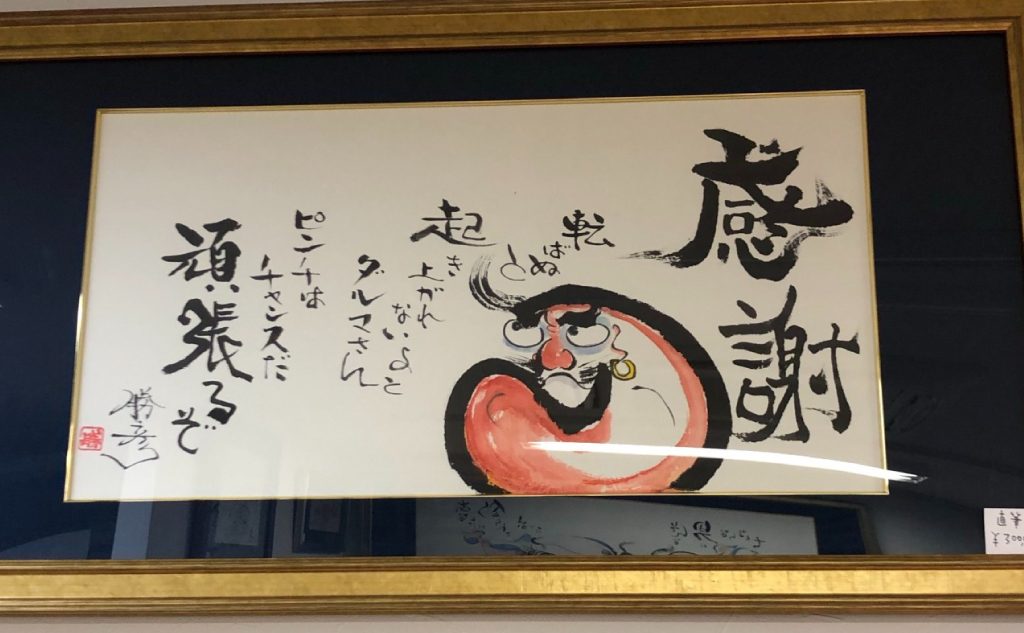 感謝
転ばぬと
起き上がれ
ないよと
ダルマさん
ピンチは
チャンスだ
頑張るぞ
勝彦
直筆